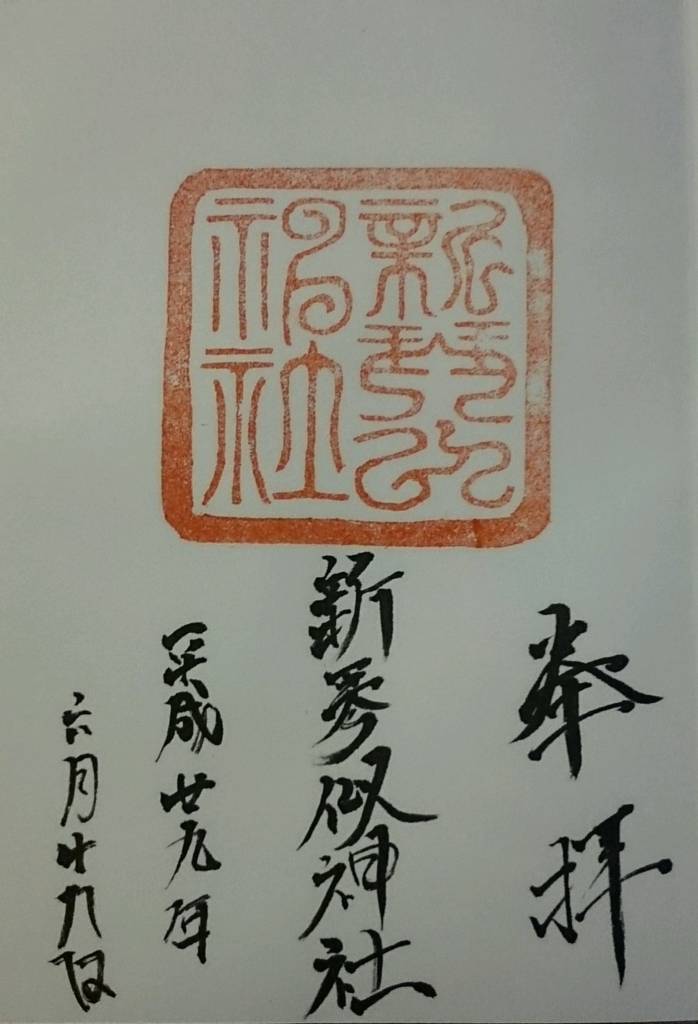 新琴似神社
奉拝
新琴似神社
平成廿九年
六月廿九日